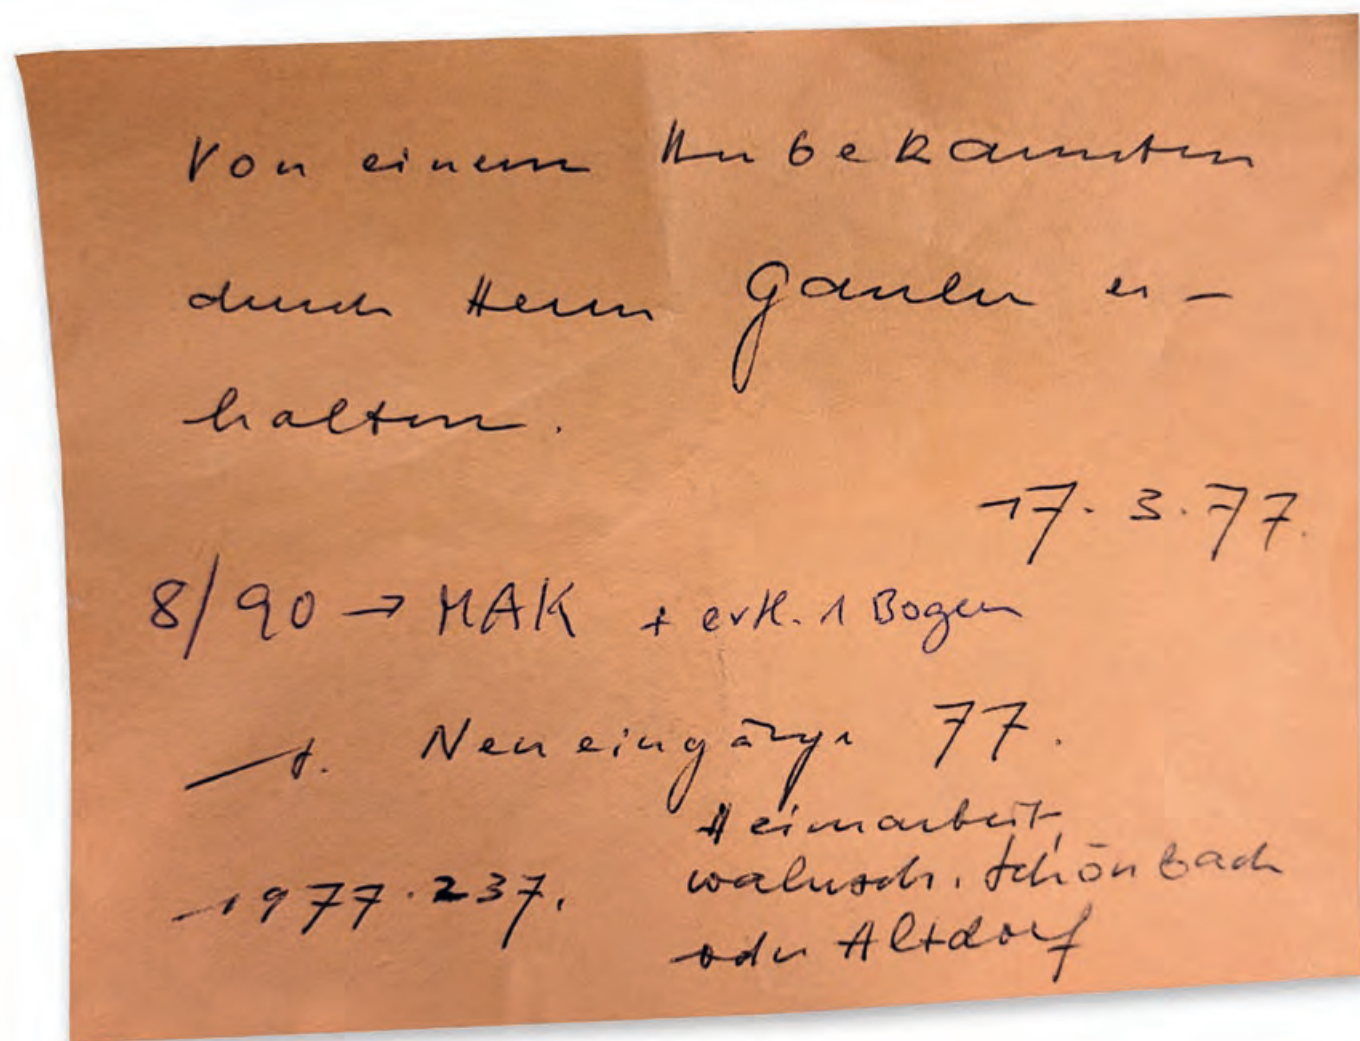 Von einem Unbekannten
durch Herrn Ganler er-
halten.
17. 3. 77.
8/90 → MAK + evtl. 1 Bogen
s. Neueingänge 77.
1977.237.
Heimarbeit,
wahrsch. Schönbach
oder Altdorf